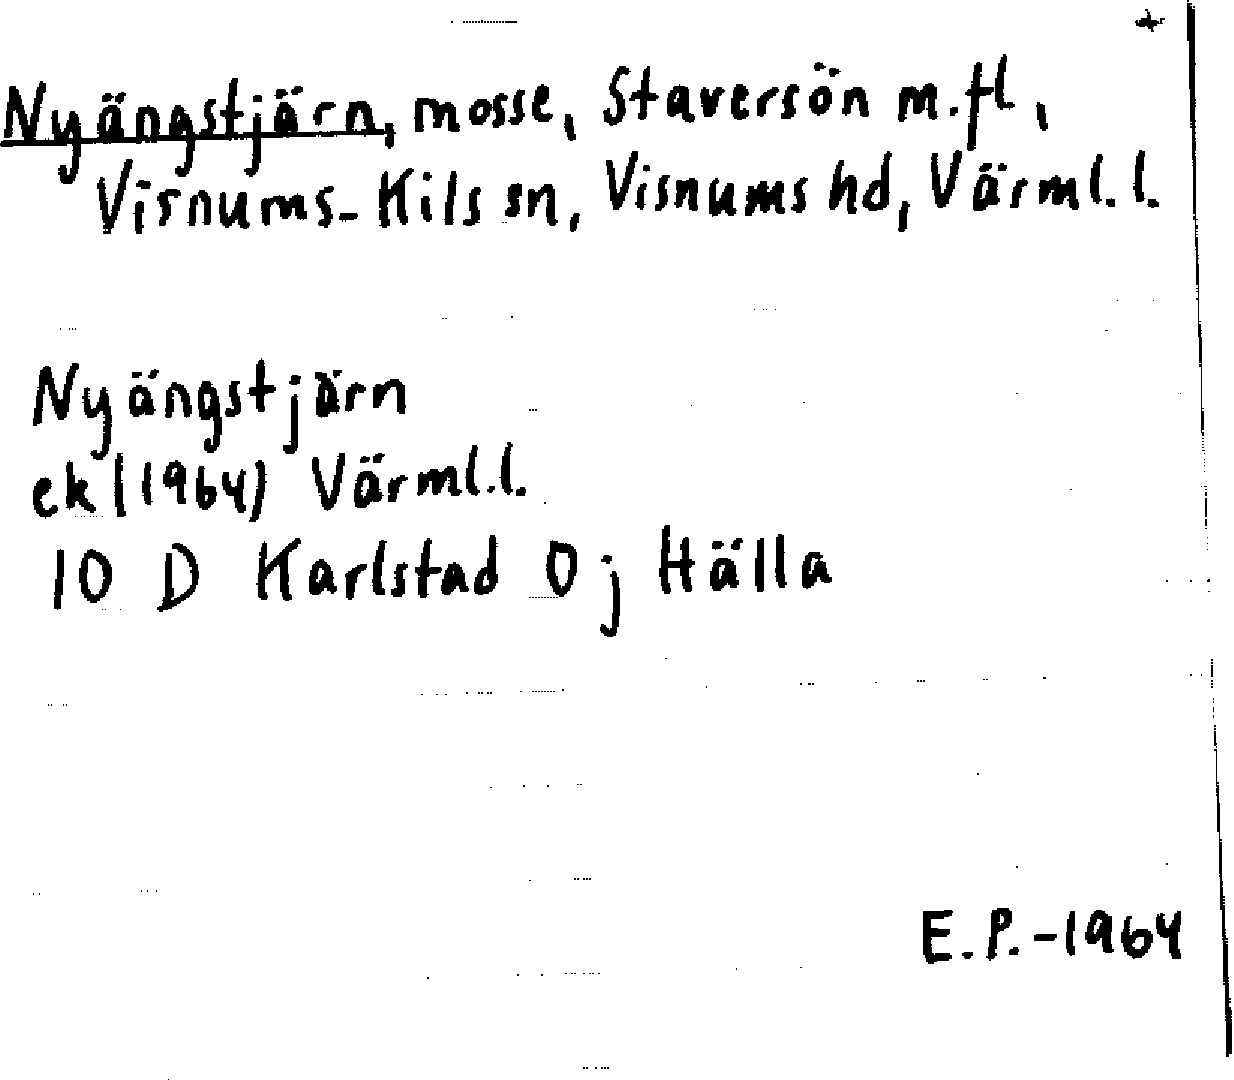 Nyängstjärn, mosse, Staversön m.fl.,
Visnums-Kils sn, Visnums hd, Värml. l.
Nyängstjärn
ek (1964) Värml.l.
10 D Karlstad 0 j Hälla
E.P.-1964